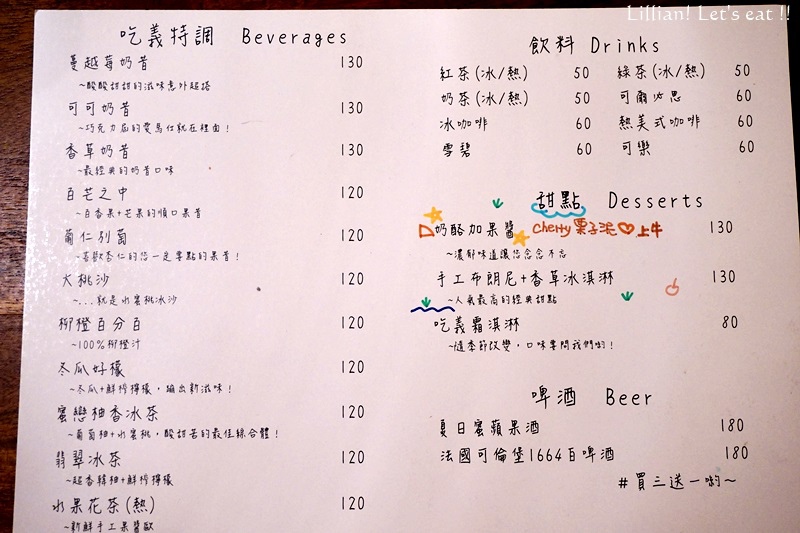 Lillian! Let's eat !!
吃義特調 Beverages
蔓越莓奶昔 130
~酸酸甜甜的滋味意外超搭
可可奶昔 130
~巧克力底的愛馬仕就在裡面！
香草奶昔 130
~最經典的奶昔口味
百芒之中 120
~百香果+芒果的順口果昔
蔔仁別萄 120
~喜歡杏仁的您一定要點的果昔！
大桃沙 120
~...就是水蜜桃冰沙
柳橙百分百 120
~100%柳橙汁
冬瓜好檬 120
~冬瓜+鮮榨檸檬，蹦出新滋味！
蜜戀柚香冰茶 120
~葡萄柚+水蜜桃，酸甜苦的最佳綜合體！
翡翠冰茶 120
~超香韓柚+鮮榨檸檬
水果花茶(熱) 120
~新鮮手工果醬歐
飲料 Drinks
紅茶(冰/熱) 50 綠茶(冰/熱) 50
奶茶(冰/熱) 50 可爾必思 60
冰咖啡 60 熱美式咖啡 60
雪碧 60 可樂 60
甜點 Desserts
奶酪加果醬 Cherry 栗子泥 上牛 130
~濃郁味道讓您念念不忘
手工布朗尼+香草冰淇淋 130
~人氣最高的經典甜點
吃義霜淇淋 80
~隨季節改變，口味要問我們喲！
啤酒 Beer
夏日蜜蘋果酒 180
法國可倫堡1664白啤酒 180
#買三送一喲~